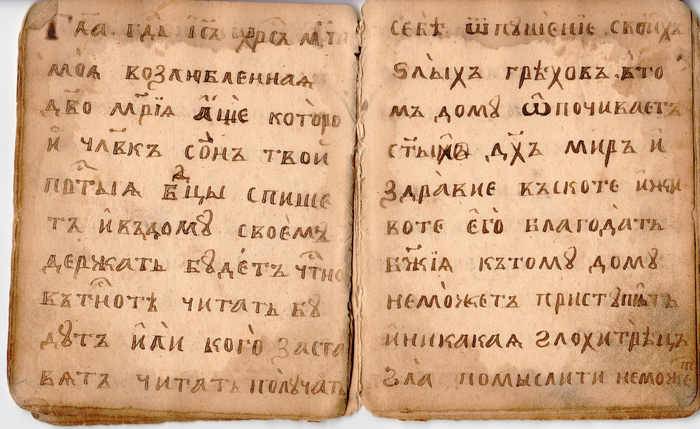 гл҃а гдь і҃съ хр҃съ мт҃и
моя возлюбленная
дв҃о мр҃їя а҆́ще кото́ро
и҆ чл҃вкъ со́нъ твой
прст҃ы́ѧ бцды спише
тъ и҆въдомꙋ своемꙋ
держать бꙋ́детъ чт҃но
вътн҃отѣ читать бꙋ
дꙋтъ и҆ли кого̀ заста
вятъ читать получать
себѣ ѿпꙋшенїе свои́хъ
ѕлыхъ грѣховъ вто
мъ домꙋ ѿпочиваетъ
ст҃ый дх҃ъ миръ и҆
здра́вие въскоте и҆жи
воте е҆го̀ благода́ть
бж҃їя кътомꙋ домꙋ
неможетъ пристꙋпить
и҆никакая злохитрѣцъ
зла помыслити неможетъ